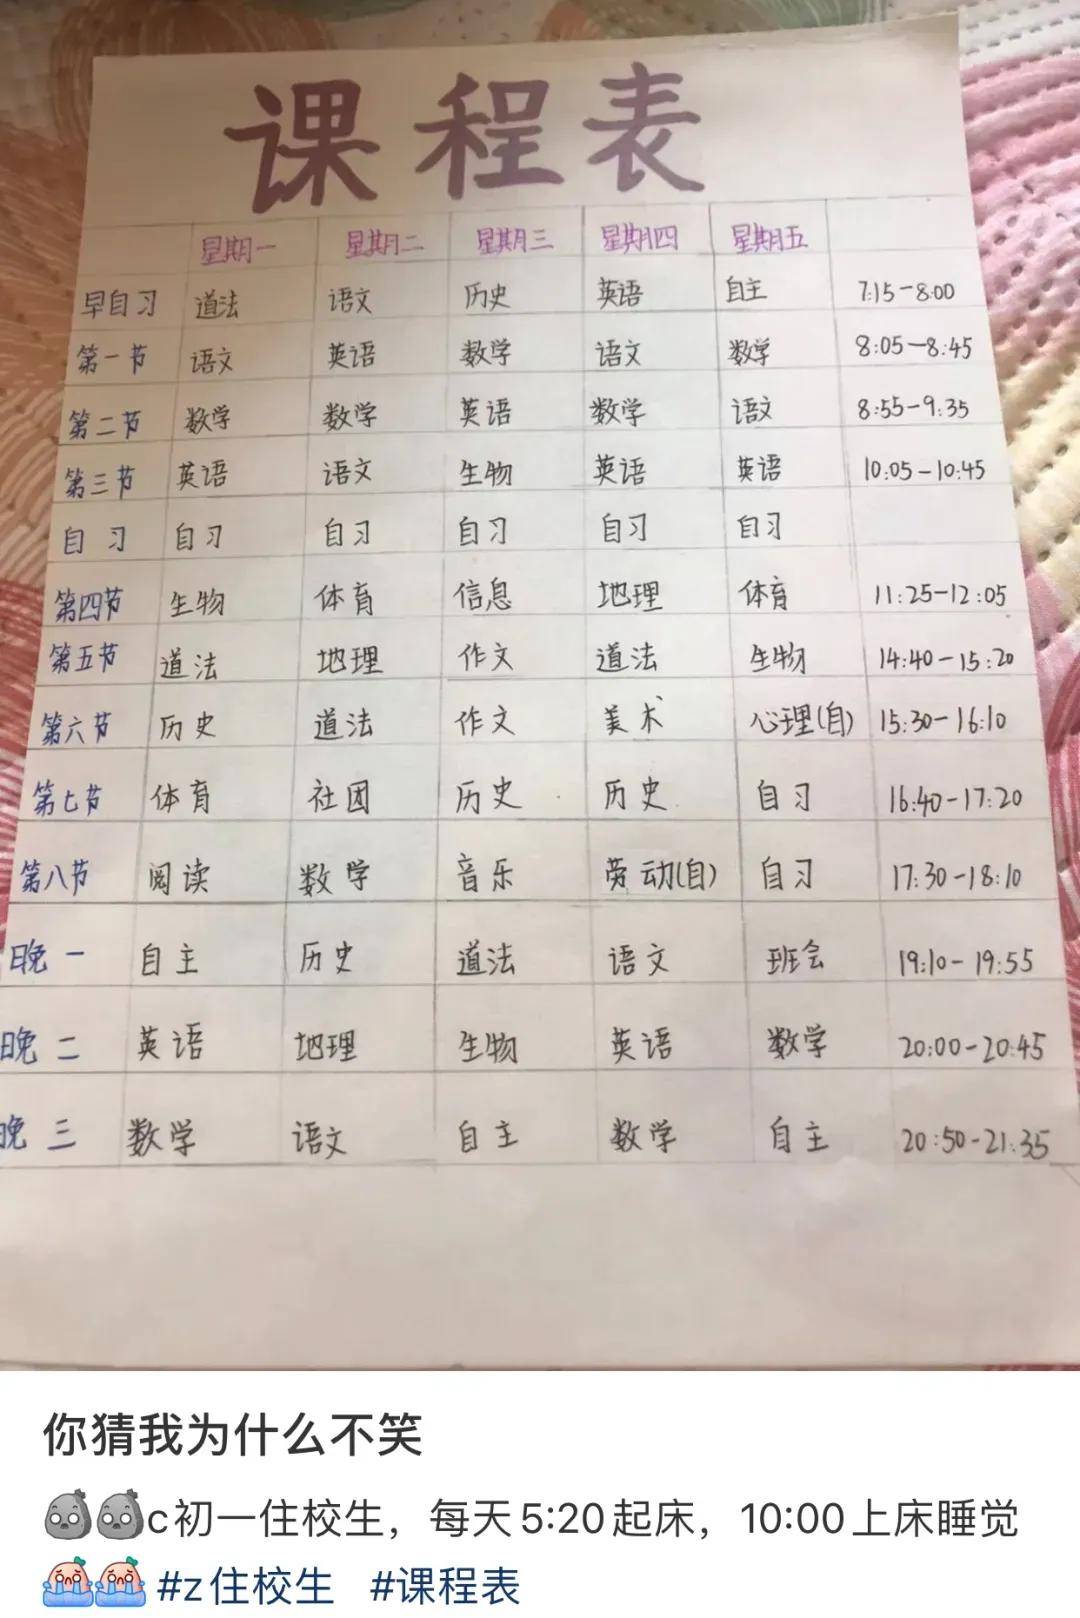 课程表
星期一 星期二 星期三 星期四 星期五
早自习 道法 语文 历史 英语 自主 7:15-8:00
第一节 语文 英语 数学 语文 数学 8:05-8:45
第二节 数学 数学 英语 数学 语文 8:55-9:35
第三节 英语 语文 生物 英语 英语 10:05-10:45
自习 自习 自习 自习 自习 自习
第四节 生物 体育 信息 地理 体育 11:25-12:05
第五节 道法 地理 作文 道法 生物 14:40-15:20
第六节 历史 道法 作文 美术 心理(自) 15:30-16:10
第七节 体育 社团 历史 历史 自习 16:40-17:20
第八节 阅读 数学 音乐 劳动(自) 自习 17:30-18:10
晚一 自主 历史 道法 语文 班会 19:10-19:55
晚二 英语 地理 生物 英语 数学 20:00-20:45
晚三 数学 语文 自主 数学 自主 20:50-21:35
你猜我为什么不笑
c初一住校生，每天5:20起床，10:00上床睡觉
#z住校生 #课程表